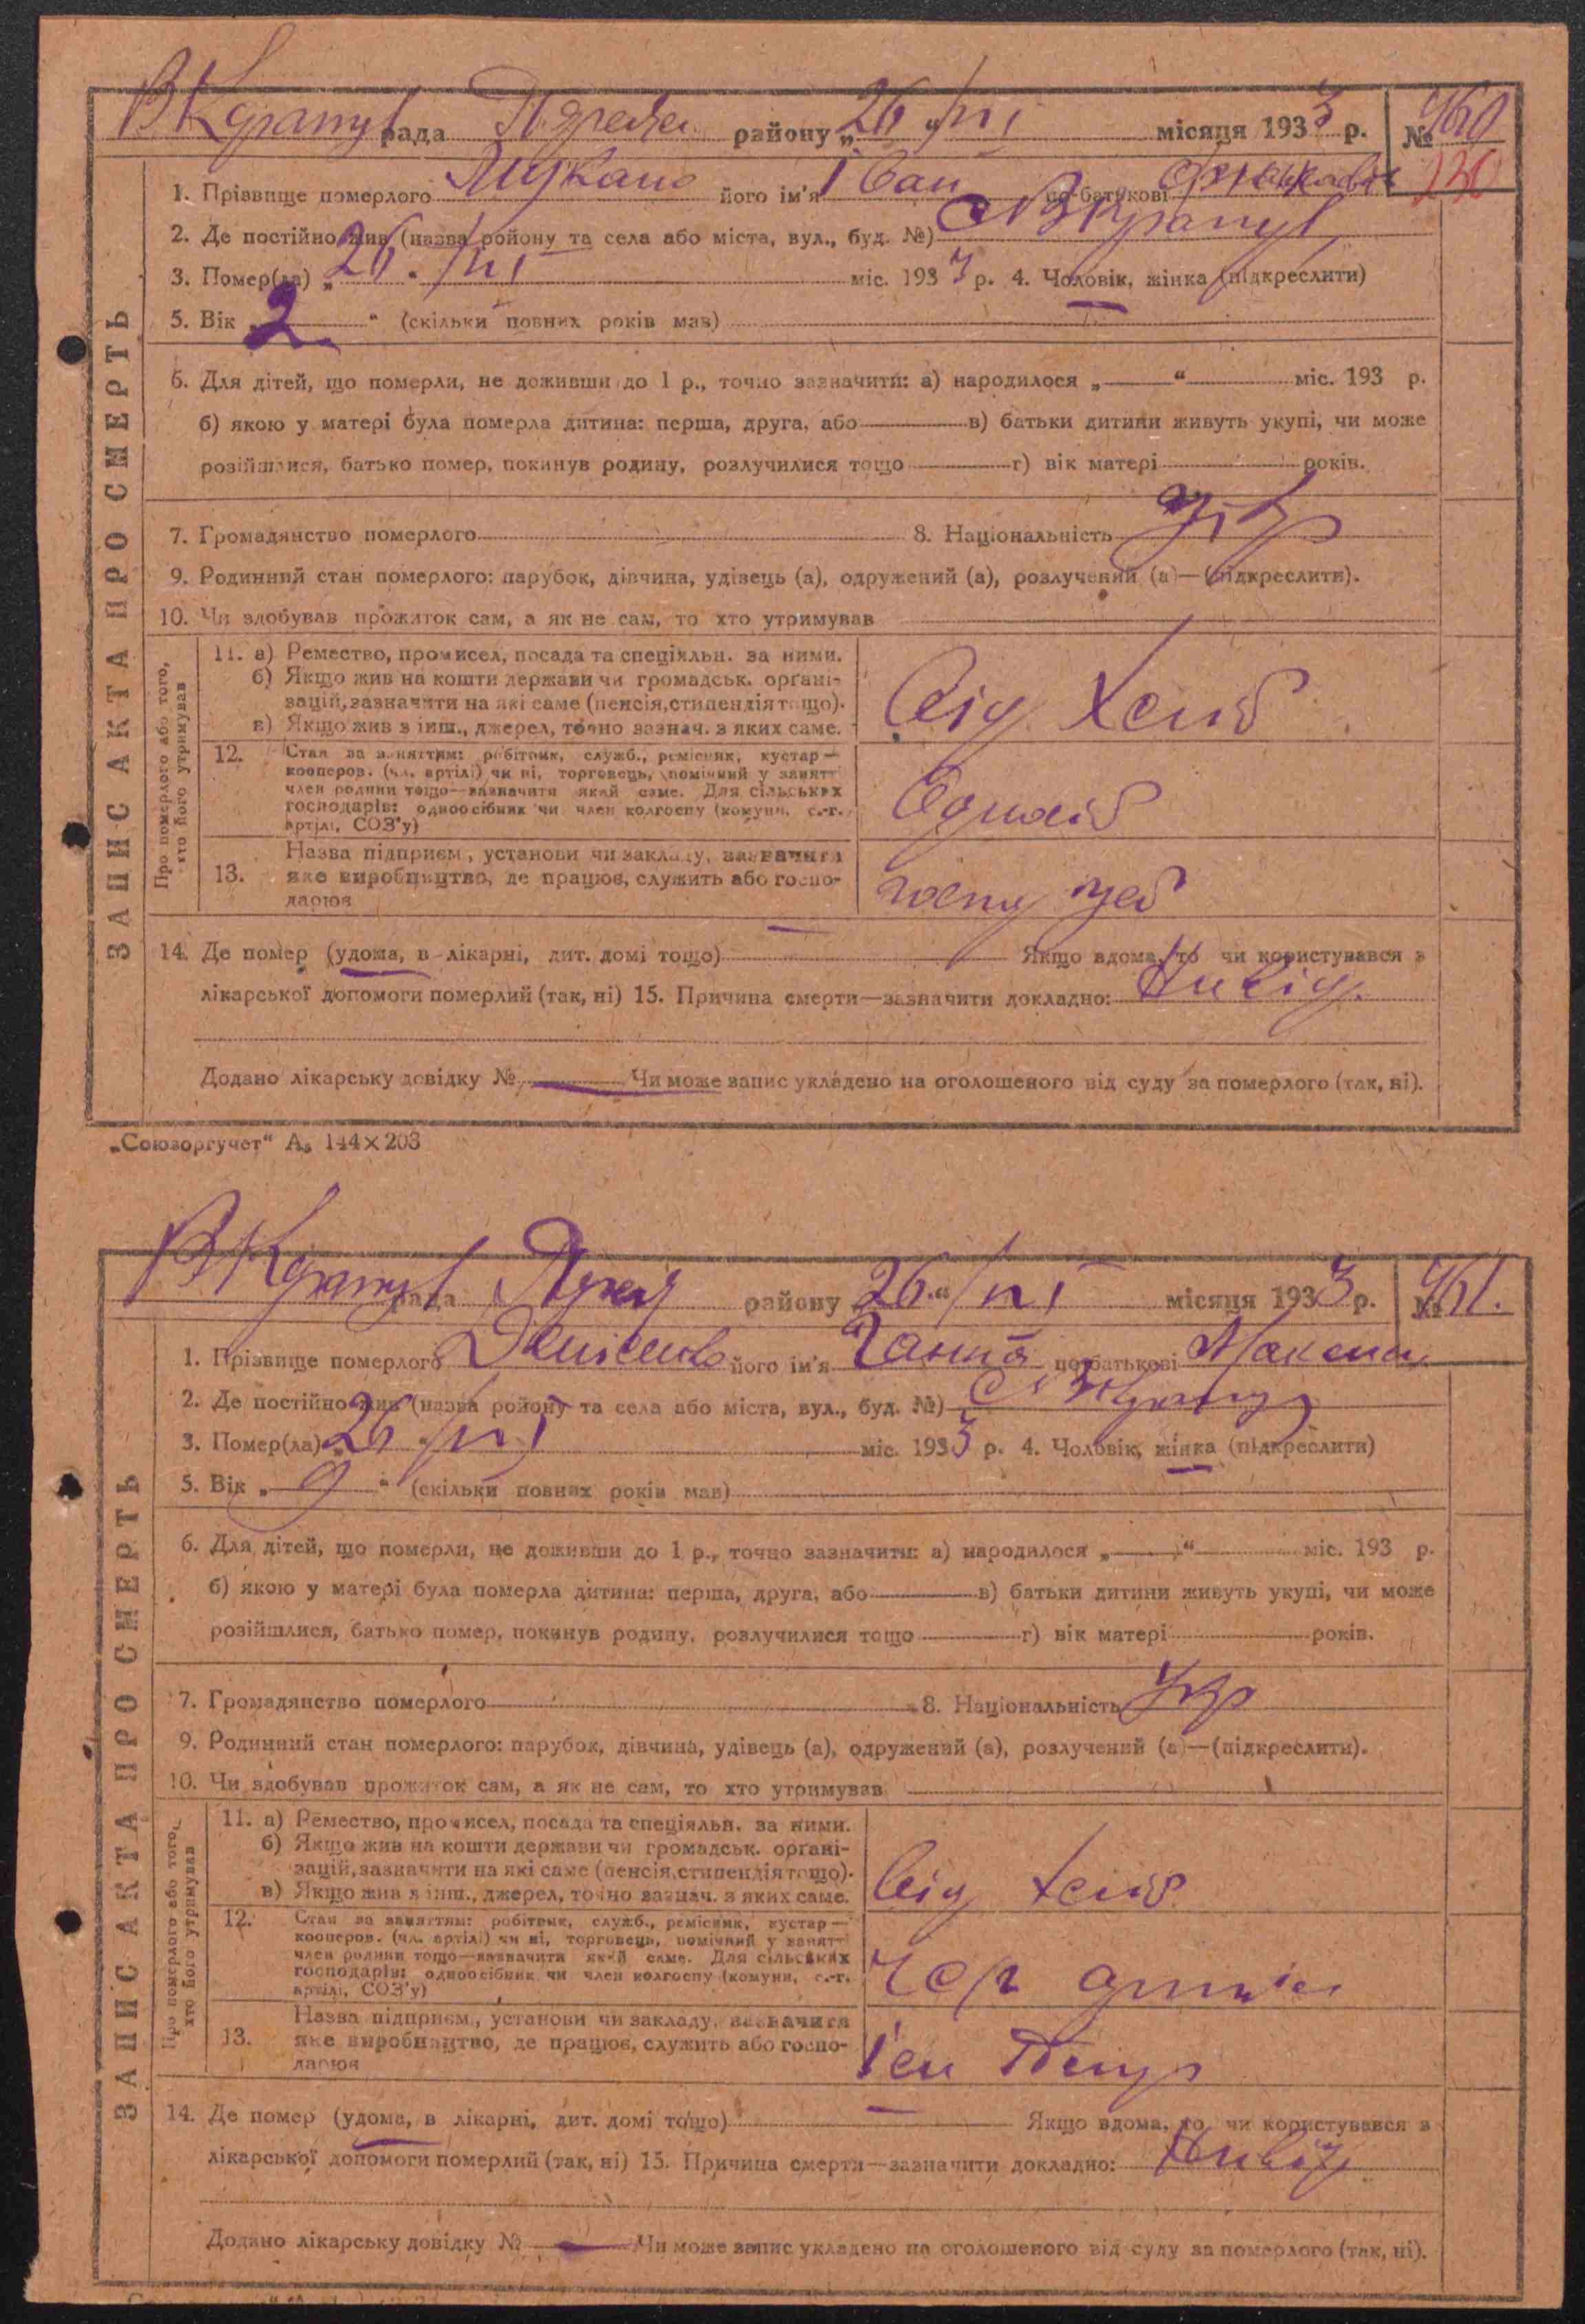 рада району „26“ /VII місяця 1933 р. № 460
1. Прізвище померлого його ім'я Іван по-батькові 230
2. Де постійно жив (назва району та села або міста, вул., буд. №)
3. Помер(ла) „26“ /VII міс. 1933 р. 4. Чоловік, жінка (підкреслити)
5. Вік „2“ (скільки повних років мав)
6. Для дітей, що померли, не доживши до 1 р., точно зазначити: а) народилося „ “ міс. 193 р.
б) якою у матері була померла дитина: перша, друга, або в) батьки дитини живуть укупі, чи може
розійшлися, батько помер, покинув родину, розлучилися тощо г) вік матері років.
7. Громадянство померлого 8. Національність Укр
9. Родинний стан померлого: парубок, дівчина, удівець (а), одружений (а), розлучений (а)—(підкреслити).
10. Чи здобував прожиток сам, а як не сам, то хто утримував
ЗАПИС АКТА ПРО СМЕРТЬ
Про померлого або того, хто його утримував
11. а) Ремество, промисел, посада та спеціяльн. за ними.
б) Якщо жив на кошти держави чи громадськ. органі-
зацій, зазначити на які саме (пенсія, стипендія тощо).
в) Якщо жив з інш., джерел, точно зазнач. з яких саме.
12. Стан за заняттям: робітник, служб., ремісник, кустар—
кооперов. (чл. артілі) чи ні, торговець, помічний у занятті
член родини тощо—зазначити який саме. Для сільських
господарів: одноосібник чи член колгоспу (комуни, с.-г.
артілі, СОЗ'у)
13. Назва підприєм., установи чи закладу, зазначити
яке виробництво, де працює, служить або госпо-
дарює
14. Де помер (удома, в лікарні, дит. домі тощо) Якщо вдома, то чи користувався з
лікарської допомоги померлий (так, ні) 15. Причина смерти—зазначити докладно:
Додано лікарську довідку № Чи може запис укладено на оголошеного від суду за померлого (так, ні).
„Союзоргучет“ А₅ 144×203
рада району „26“ /VII місяця 1933 р. № 461.
1. Прізвище померлого його ім'я Ганна по-батькові Максим
2. Де постійно жив (назва району та села або міста, вул., буд. №)
3. Помер(ла) „26“ /VII міс. 1933 р. 4. Чоловік, жінка (підкреслити)
5. Вік „9“ (скільки повних років мав)
6. Для дітей, що померли, не доживши до 1 р., точно зазначити: а) народилося „ “ міс. 193 р.
б) якою у матері була померла дитина: перша, друга, або в) батьки дитини живуть укупі, чи може
розійшлися, батько помер, покинув родину, розлучилися тощо г) вік матері років.
7. Громадянство померлого 8. Національність Укр
9. Родинний стан померлого: парубок, дівчина, удівець (а), одружений (а), розлучений (а)—(підкреслити).
10. Чи здобував прожиток сам, а як не сам, то хто утримував
ЗАПИС АКТА ПРО СМЕРТЬ
Про померлого або того, хто його утримував
11. а) Ремество, промисел, посада та спеціяльн. за ними.
б) Якщо жив на кошти держави чи громадськ. органі-
зацій, зазначити на які саме (пенсія, стипендія тощо).
в) Якщо жив з інш., джерел, точно зазнач. з яких саме.
12. Стан за заняттям: робітник, служб., ремісник, кустар—
кооперов. (чл. артілі) чи ні, торговець, помічний у занятті
член родини тощо—зазначити який саме. Для сільських
господарів: одноосібник чи член колгоспу (комуни, с.-г.
артілі, СОЗ'у)
13. Назва підприєм., установи чи закладу, зазначити
яке виробництво, де працює, служить або госпо-
дарює
14. Де помер (удома, в лікарні, дит. домі тощо) Якщо вдома, то чи користувався з
лікарської допомоги померлий (так, ні) 15. Причина смерти—зазначити докладно:
Додано лікарську довідку № Чи може запис укладено на оголошеного від суду за померлого (так, ні).